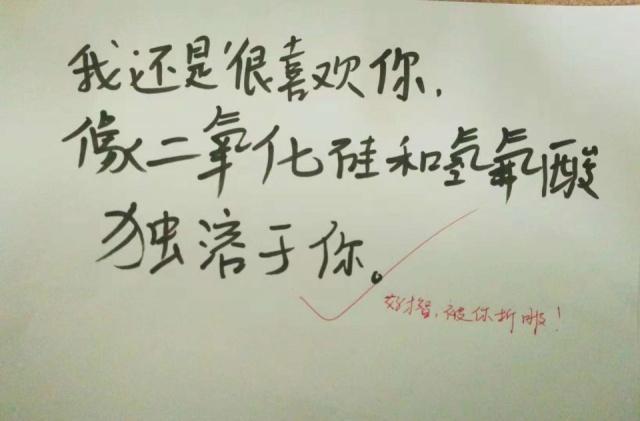 我还是很喜欢你，
像二氧化硅和氢氟酸
独溶于你。
好才智，被你折服！